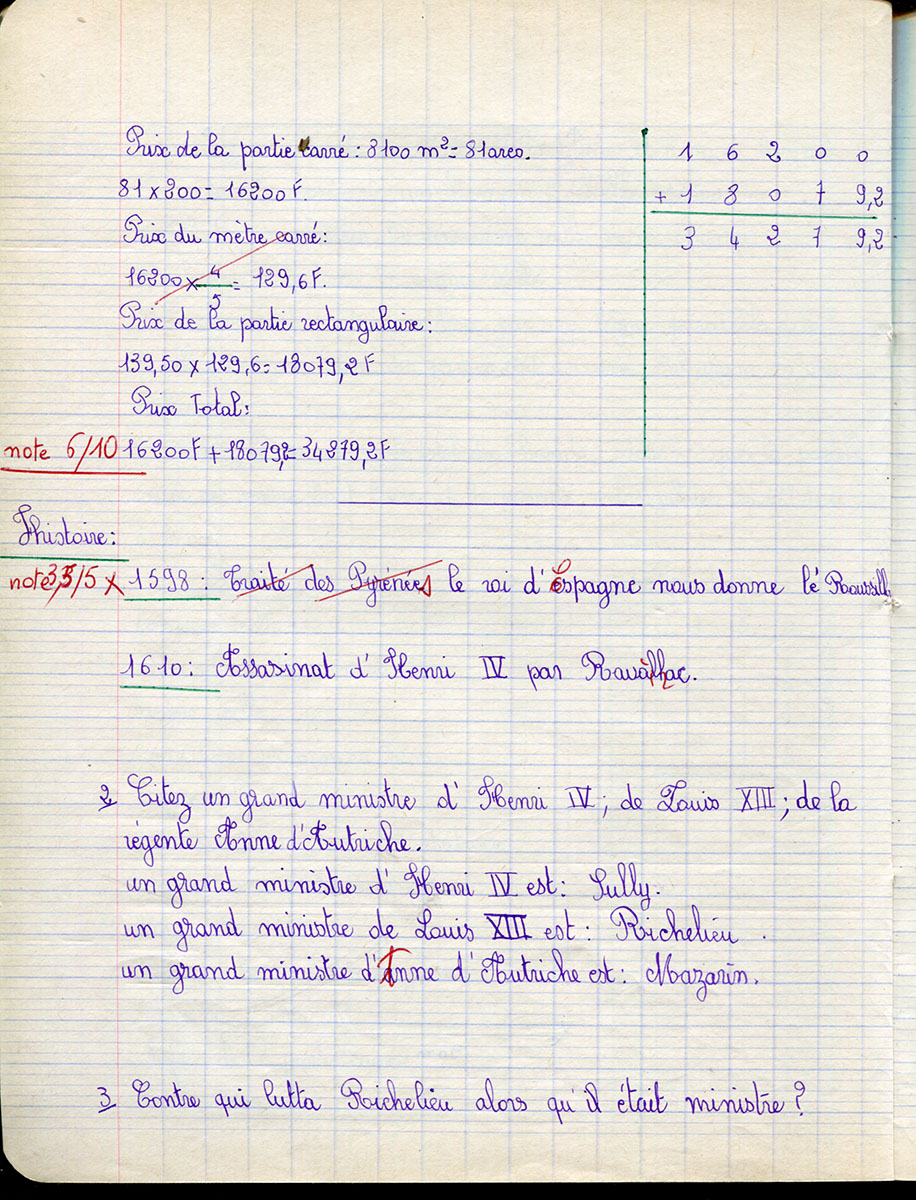 Prix de la partie carré : 8100 m² = 81 ares.
81 x 200 = 16200 F.
Prix du mètre carré :
16200 x 4/5 = 129,6 F.
Prix de la partie rectangulaire :
139,50 x 129,6 = 18079,2 F
Prix Total :
note 6/10 16200 F + 18079,2 = 34279,2 F
1 6 2 0 0
+ 1 8 0 7 9,2
3 4 2 7 9,2
histoire :
note 3,5/5 x 1598 : Traité des Pyrénées le roi d'Espagne nous donne lé Roussill
1610 : Assasinat d'Henri IV par Ravaillac.
2 Citez un grand ministre d'Henri IV ; de Louis XIII ; de la
régente Anne d'Autriche.
un grand ministre d'Henri IV est : Sully.
un grand ministre de Louis XIII est : Richelieu .
un grand ministre d'Anne d'Autriche est : Mazarin.
3 Contre qui lutta Richelieu alors qu'il était ministre ?